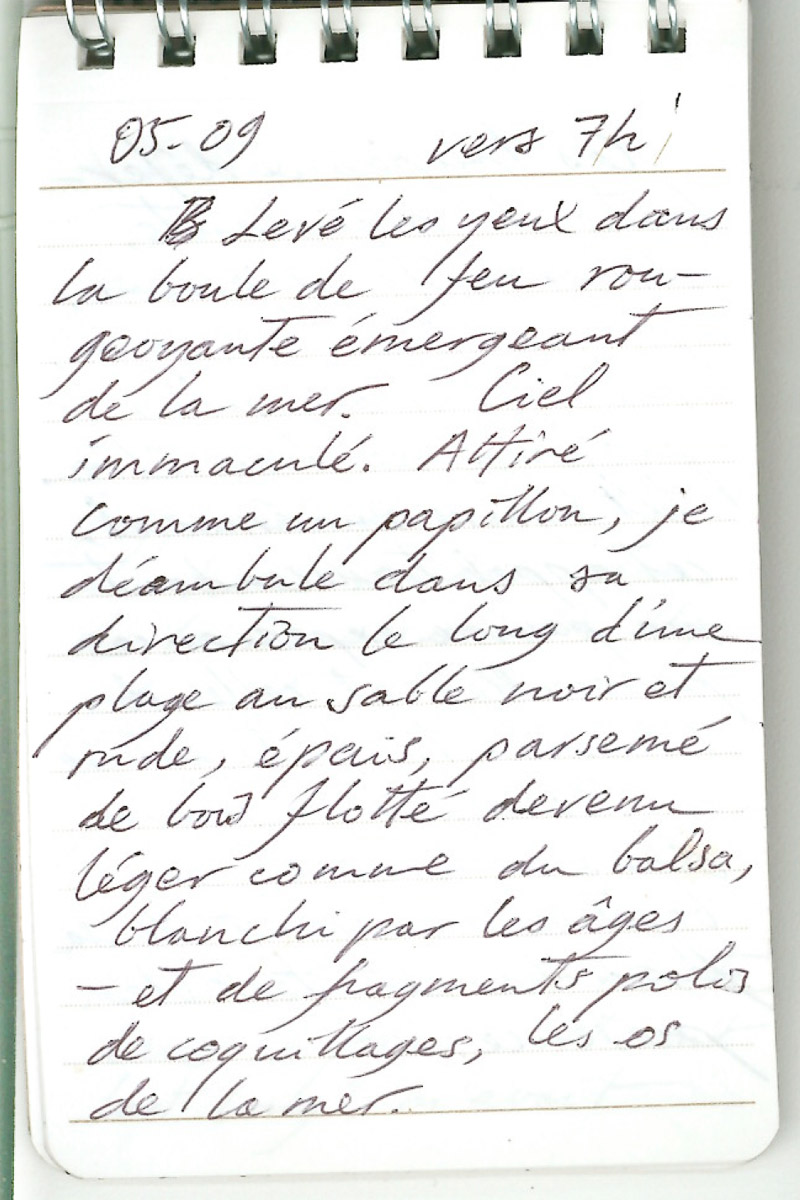 05-09 vers 7h
Levé les yeux dans
la boule de feu rou-
geoyante émergeant
de la mer. Ciel
immaculé. Attiré
comme un papillon, je
déambule dans sa
direction le long d'une
plage au sable noir et
rude, épais, parsemé
de bois flotté devenu
léger comme du balsa,
blanchi par les âges
- et de fragments polis
de coquillages, les os
de la mer.